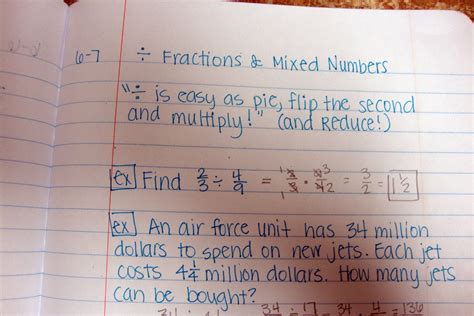 6-7 ÷ Fractions & Mixed Numbers
"÷ is easy as pie, flip the second
and multiply!" (and Reduce!)
ex Find 2/3 ÷ 4/9 = 2/3 · 9/4 = 3/2 = 1 1/2
ex An air force unit has 34 million
dollars to spend on new jets. Each jet
costs 4 1/4 million dollars. How many jets
can be bought?
34 ÷ 17 34 4 = 136